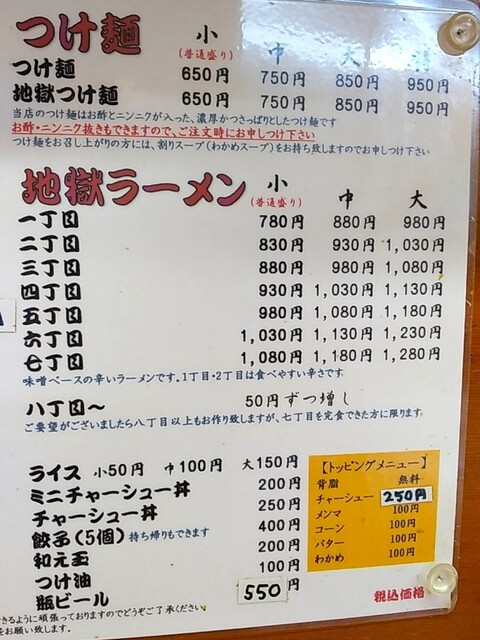 つけ麺 小 中 大
(普通盛り)
つけ麺 650円 750円 850円 950円
地獄つけ麺 650円 750円 850円 950円
当店のつけ麺はお酢とニンニクが入った、濃厚かつさっぱりとしたつけ麺です
お酢・ニンニク抜きもできますので、ご注文時にお申しつけ下さい
つけ麺をお召し上がりの方には、割りスープ(わかめスープ)をお持ち致しますのでお申しつけ下さい
地獄ラーメン 小 中 大
(普通盛り)
一丁目 780円 880円 980円
二丁目 830円 930円 1,030円
三丁目 880円 980円 1,080円
四丁目 930円 1,030円 1,130円
五丁目 980円 1,080円 1,180円
六丁目 1,030円 1,130円 1,230円
七丁目 1,080円 1,180円 1,280円
味噌ベースの辛いラーメンです。1丁目・2丁目は食べやすい辛さです
八丁目～ 50円ずつ増し
ご要望がございましたら八丁目以上もお作り致しますが、七丁目を完食できた方に限ります
ライス 小50円 中100円 大150円
ミニチャーシュー丼 200円
チャーシュー丼 250円
餃子(5個) 持ち帰りもできます 400円
和え玉 200円
つけ油 100円
瓶ビール 550円
【トッピングメニュー】
背脂 無料
チャーシュー 250円
メンマ 100円
コーン 100円
バター 100円
わかめ 100円
税込価格
きるように頑張っておりますのでどうぞご了承ください。
をお願い致します。